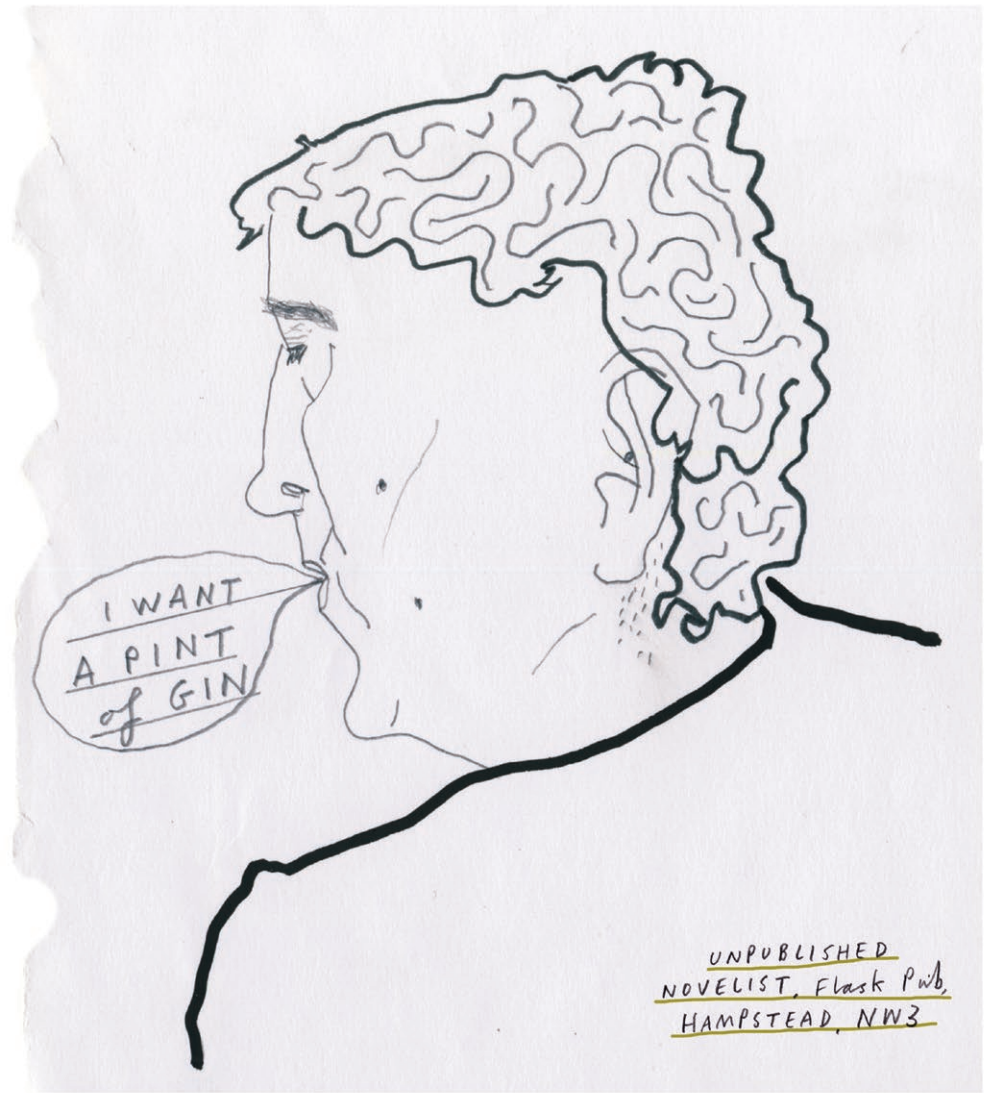 I WANT
A PINT
of GIN
UNPUBLISHED
NOVELIST, Flask Pub,
HAMPSTEAD, NW3